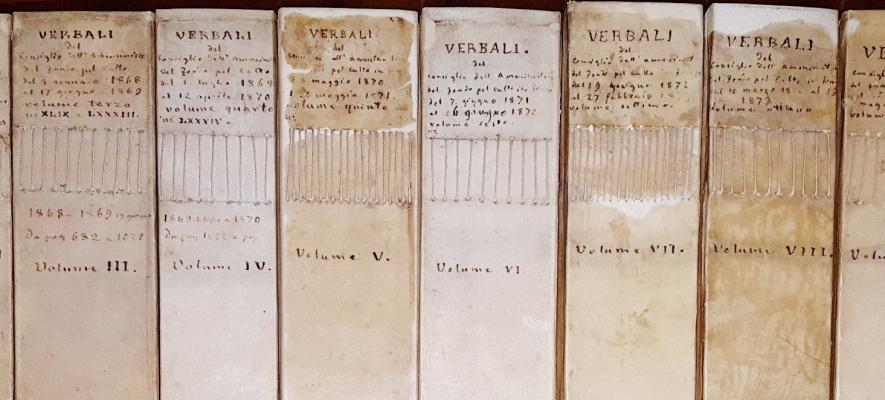 VERBALI
del
Consiglio dell'Amministr
del fondo pel culto
dal 9 gennaio 1868
al 17 giugno 1869
volume terzo
ni XLIX a LXXXIII.
1868 - 1869 17 giugno
Da pag 682 a 1022
Volume III.
VERBALI
del
Consiglio dell'Amministr
del fondo pel culto
dal 1 luglio 1869
al 12 aprile 1870
volume quarto
ni LXXXIV
1869 1 luglio a 1870
Da pag
Volume IV.
VERBALI
del
dell'Amministr
del fondo pel culto
maggio 1870
maggio 1871
volume quinto
Volume V.
VERBALI.
del
consiglio dell'Amministraz
del fondo pel culto
dal 7 giugno 1871
al giugno 1872
volume sesto.
Volume VI
VERBALI
del
Consiglio dell'amminist
del fondo pel culto
dal 19 giugno 1872
al 27 febbraio 18
volume settimo.
Volume VII.
VERBALI
del
Consiglio dell'Amminist
del fondo pel culto
dal 10 marzo 18
1873
volume ottavo
Volume VIII.
VE